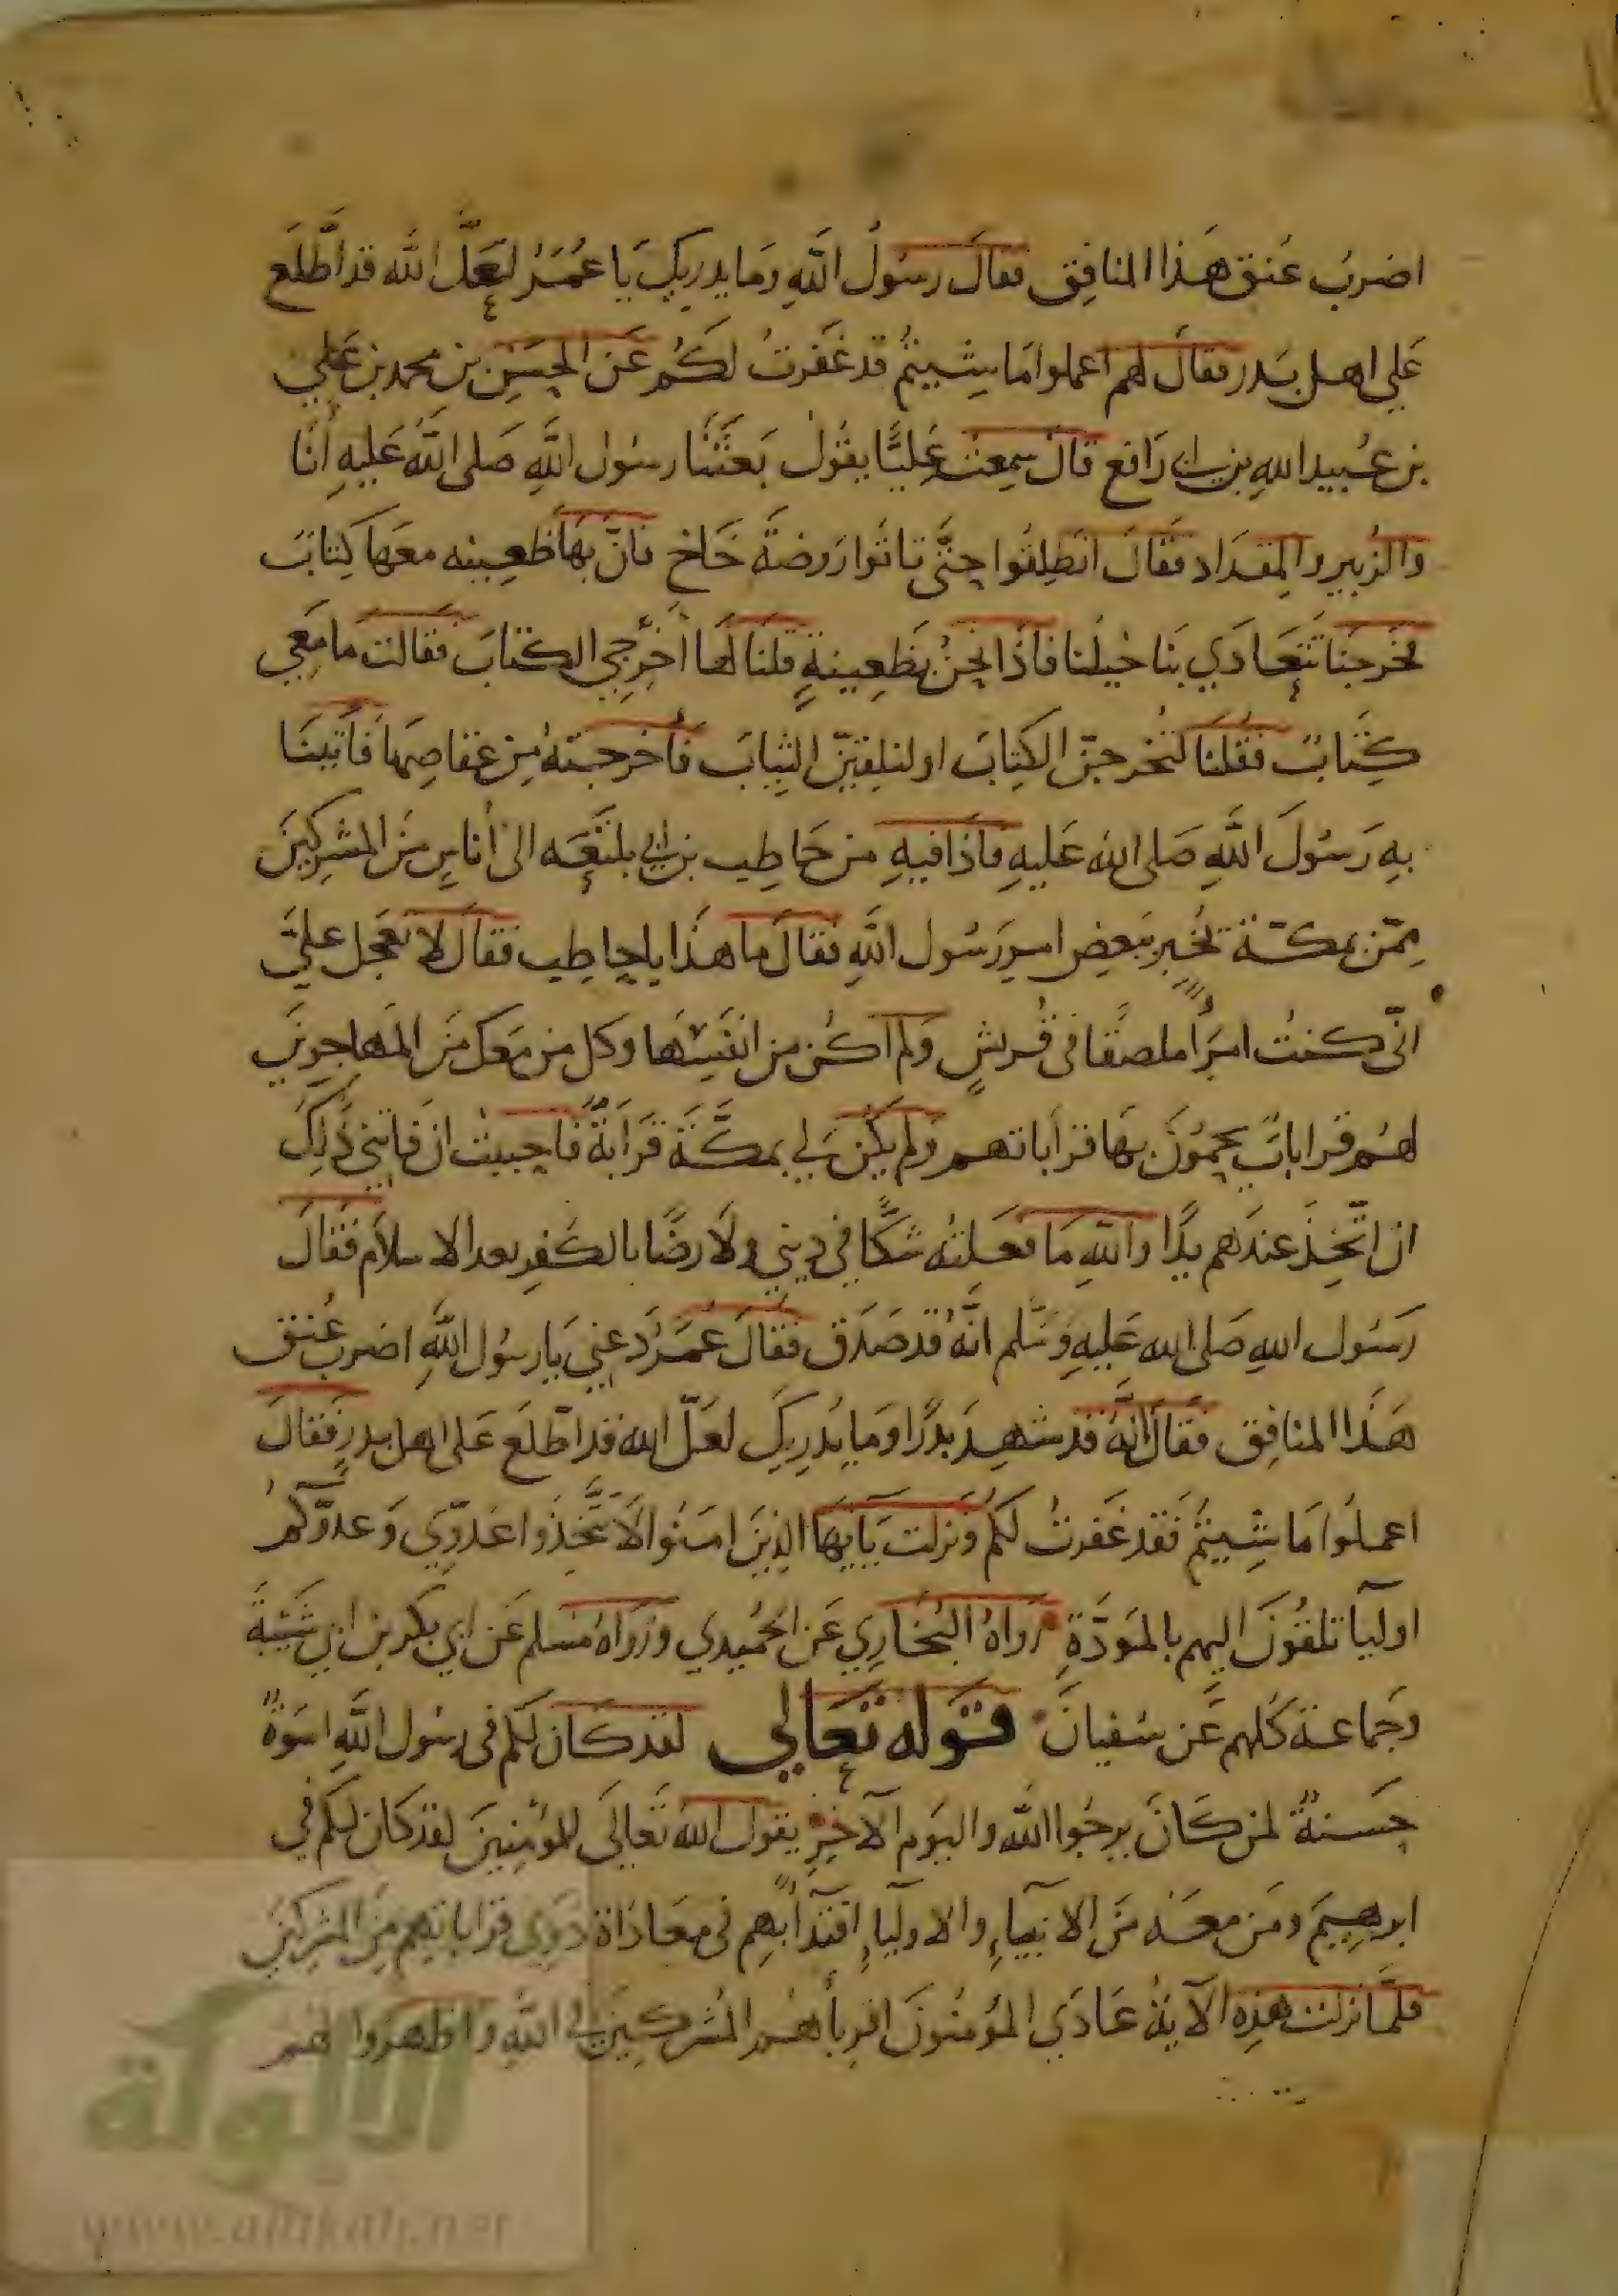 اضرب عنق هذا المنافق فقال رسول الله وما يدريك يا عمر لعل الله قد اطلع
علي اهل بدر فقال لهم اعملوا ما شيتم قد غفرت لكم عن الحسن بن محمد بن علي
بن عبيد الله بن ابي رافع قال سمعت عليا يقول بعثنا رسول الله صلى الله عليه أنا
والزبير والمقداد فقال انطلقوا حتى تاتوا روضة خاخ فان بها ظعينه معها كتاب
فخرجنا تتعادي بنا خيلنا فاذا نحن بظعينة قلنا لها أخرجي الكتاب فقالت ما معي
كتاب فقلنا لتخرجن الكتاب او لنلقين الثياب فأخرجته من عقاصها فاتينا
به رسول الله صلى الله عليه فاذا فيه من حاطب بن ابي بلتعه الى أناس من المشركين
ممن بمكة يخبر ببعض امر رسول الله فقال ما هذا يا حاطب فقال لا تعجل علي
اني كنت امرأ ملصقا في قريش ولم اكن من انفسها وكل من معك من المهاجرين
لهم قرابات يحمون بها قراباتهم ولم يكن لي بمكة قرابة فاحببت ان فاتني ذلك
ان اتخذ عندهم يدا والله ما فعلته شكا في ديني ولا رضا بالكفر بعد الاسلام فقال
رسول الله صلى الله عليه وسلم انه قد صدق فقال عمر دعني يا رسول الله اضرب عنق
هذا المنافق فقال انه قد شهد بدرا وما يدريك لعل الله قد اطلع على اهل بدر فقال
اعملوا ما شيتم فقد غفرت لكم ونزلت يآيها الذين امنوا لا تتخذوا عدوي وعدوكم
اوليآ تلقون اليهم بالمودة رواه البخاري عن الحميدي ورواه مسلم عن ابي بكر بن ابي شيبة
وجماعة كلهم عن سفيان قوله تعالي لقد كان لكم في رسول الله اسوة
حسنة لمن كان يرجوا الله واليوم الآخر يقول الله تعالى للمؤمنين لقد كان لكم في
ابرهيم ومن معه من الانبيآء والاوليآء اقتدآ بهم في معاداة ذوي قراباتهم من المشركين
فلما نزلت هذه الآية عادي المؤمنون اقربأهم المشركين في الله واظهروا لهم
الألوكة
www.alukah.net